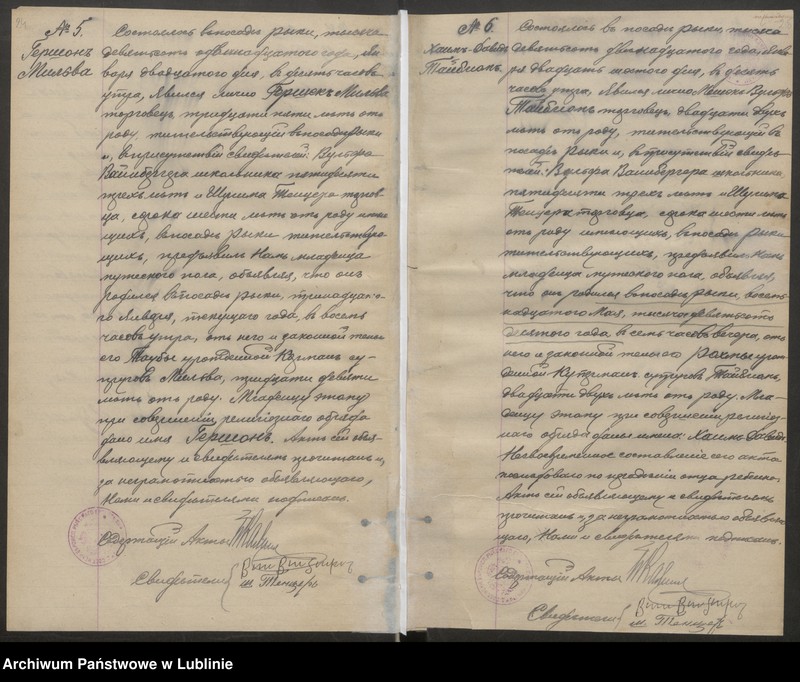 № 5.
Гершонъ
Мильва
Состоялось въ посадѣ Рыки, тысяча
девятьсотъ двѣнадцатаго года, Ян-
варя двадцатаго дня, въ десять часовъ
утра, явился лично Мильва
торговецъ, тридцати пяти лѣтъ отъ
роду, жительствующій въ посадѣ Рыки
и, въ присутствіи свидѣтелей: Вульфа
Вайнбергера школьника пятидесяти
трехъ лѣтъ и Шулима Тенцера торгов-
ца, сорока шести лѣтъ отъ роду имѣю-
щихъ, въ посадѣ Рыки жительствую-
щихъ, предъявилъ Намъ младенца
мужескаго пола, объявляя, что онъ
родился въ посадѣ Рыки, тринадцата-
го Января, текущаго года, въ восемь
часовъ утра, отъ него и законной жены
его Таубы урожденной су-
пруговъ Мильва, тридцати девяти
лѣтъ отъ роду. Младенцу этому
при совершеніи религіознаго обряда
дано имя Гершонъ. Актъ сей объя-
вляющему и свидѣтелямъ прочитанъ и,
за неграмотностью объявляющаго,
Нами и свидѣтелями подписанъ.
Содержащій Акты
Свидѣтели
Ш. Тенцеръ
№ 6.
Хаимъ-Давидъ
Тайблюмъ.
Состоялось въ посадѣ Рыки, тысяча
девятьсотъ двѣнадцатаго года, Янва-
ря двадцать шестого дня, въ десять
часовъ утра, явился лично Вульфъ
Тайблюмъ торговецъ, двадцати двухъ
лѣтъ отъ роду, жительствующій въ
посадѣ Рыки и, въ присутствіи свидѣ-
телей: Вульфа Вайнбергера школьника,
пятидесяти трехъ лѣтъ и Шулима
Тенцера торговца, сорока шести лѣтъ
отъ роду имѣющихъ, въ посадѣ Рыки
жительствующихъ, предъявилъ Намъ
младенца мужескаго пола, объявляя,
что онъ родился въ посадѣ Рыки, восем-
надцатаго Мая, тысяча девятьсотъ
десятаго года въ семь часовъ вечера, отъ
него и законной жены его урож-
денной супруговъ Тайблюмъ,
двадцати двухъ лѣтъ отъ роду. Мла-
денцу этому при совершеніи религіоз-
наго обряда даны имена: Хаимъ-Давидъ.
Несвоевременное составленіе сего акта
послѣдовало по отца ребенка.
Актъ сей объявляющему и свидѣтелямъ
прочитанъ и, за неграмотностью объявляю-
щаго, Нами и свидѣтелями подписанъ.
Содержащій Акты
Свидѣтели
Ш. Тенцеръ
Archiwum Państwowe w Lublinie